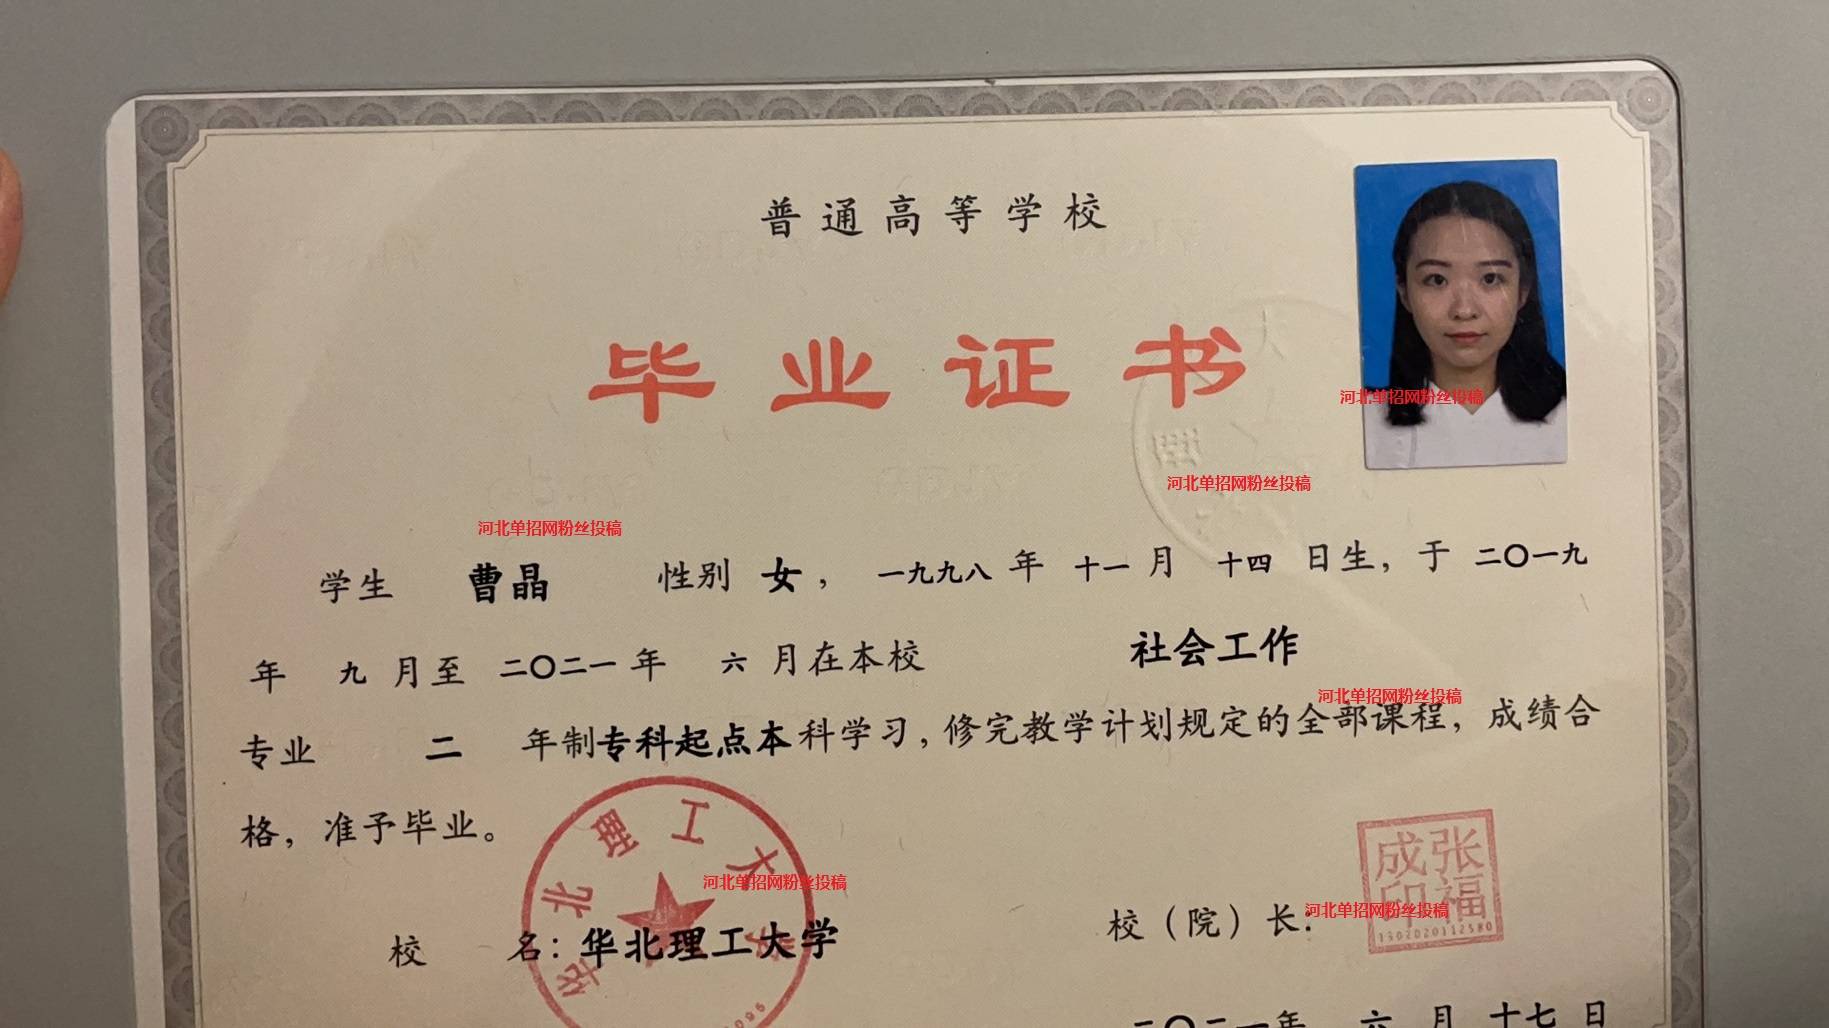 普通高等学校
毕业证书
河北单招网粉丝投稿
河北单招网粉丝投稿
河北单招网粉丝投稿
学生 曹晶 性别 女， 一九九八 年 十一 月 十四 日生，于 二〇一九
年 九 月至 二〇二一 年 六 月在本校 社会工作
河北单招网粉丝投稿
专业 二 年制专科起点本科学习，修完教学计划规定的全部课程，成绩合
格，准予毕业。
华北理工大学
河北单招网粉丝投稿
校 名：华北理工大学
校（院）长：
河北单招网粉丝投稿
张福成印
1302020112580
二〇二一年 六 月 十七 日